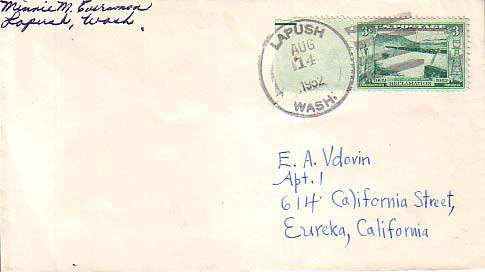 Minnie M. Everson
Lapush, Wash.
LAPUSH
AUG
14
1952
WASH.
3¢ U.S. POSTAGE 3¢
1902 RECLAMATION 1952
E. A. Vdovin
Apt. 1
614 California Street,
Eureka, California